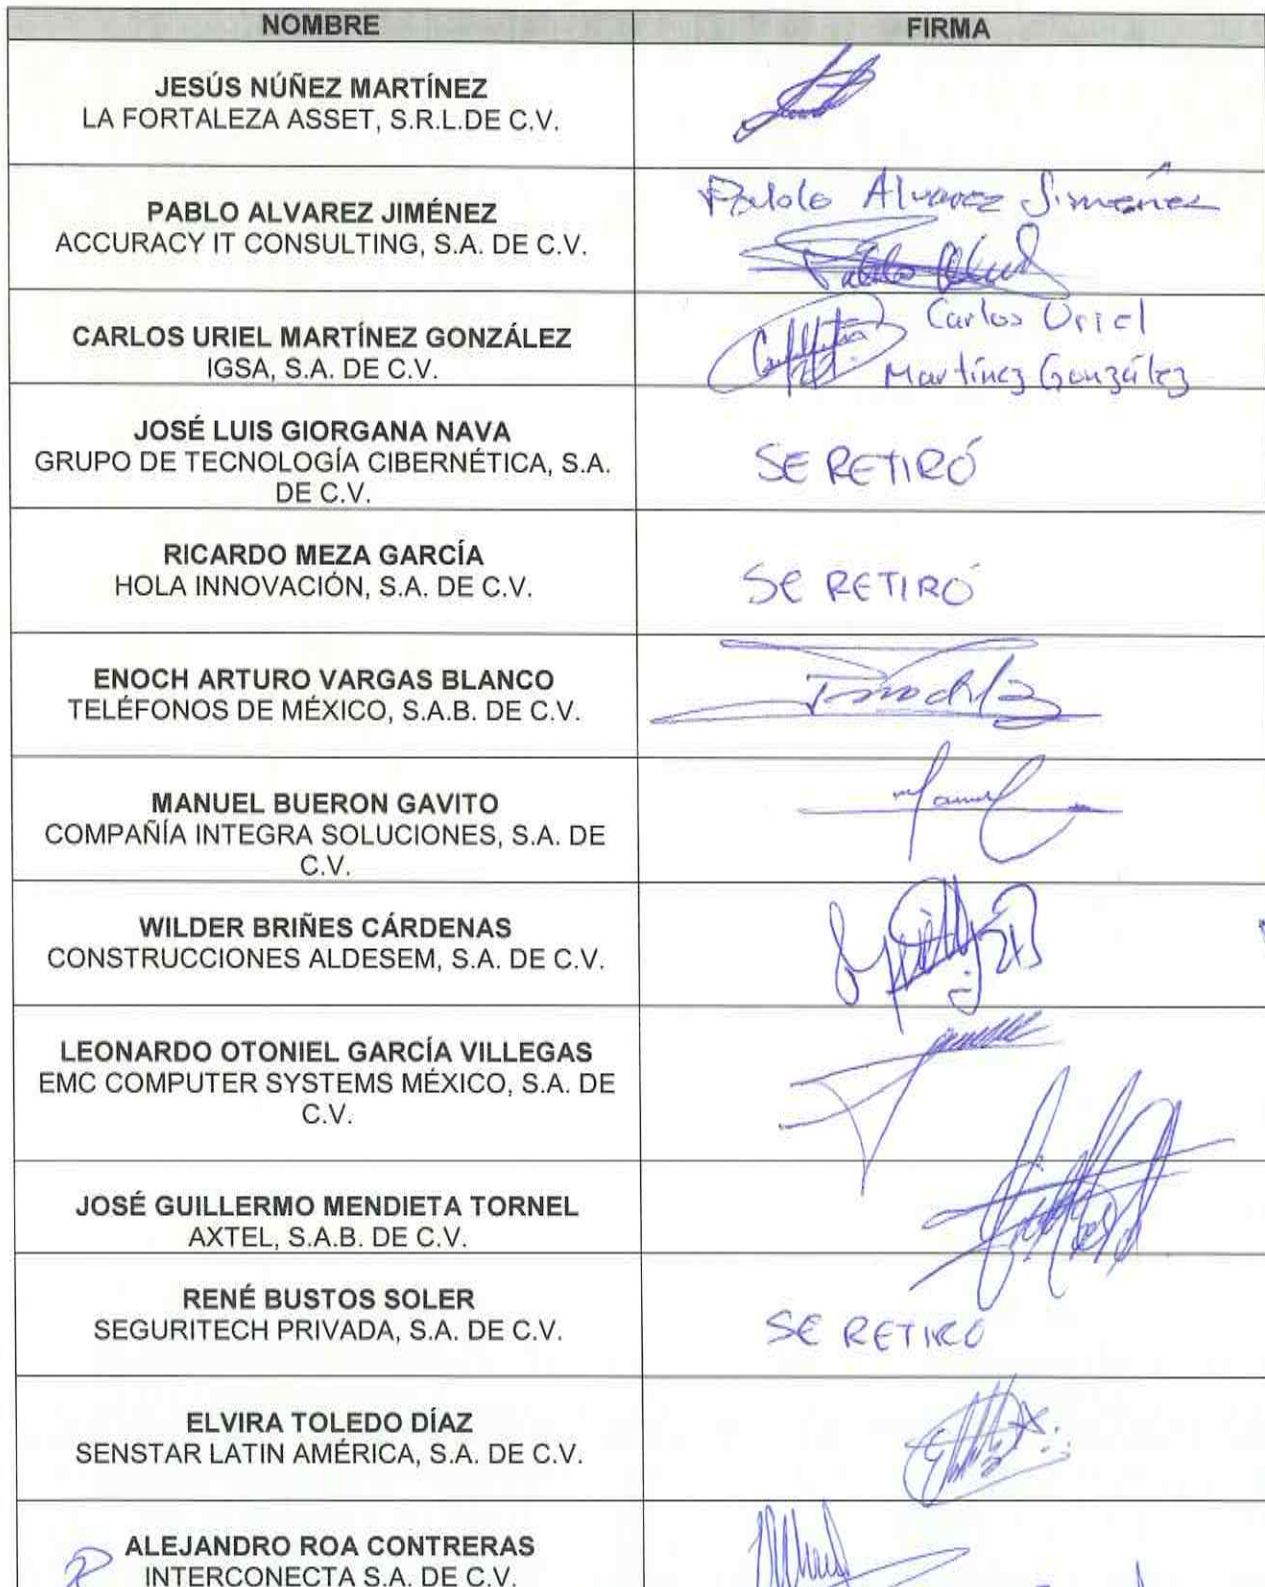 NOMBRE FIRMA
JESÚS NÚÑEZ MARTÍNEZ
LA FORTALEZA ASSET, S.R.L.DE C.V.
PABLO ALVAREZ JIMÉNEZ
ACCURACY IT CONSULTING, S.A. DE C.V.
Pablo Alvarez Jimenez
CARLOS URIEL MARTÍNEZ GONZÁLEZ
IGSA, S.A. DE C.V.
Carlos Uriel
Martínez González
JOSÉ LUIS GIORGANA NAVA
GRUPO DE TECNOLOGÍA CIBERNÉTICA, S.A.
DE C.V.
SE RETIRÓ
RICARDO MEZA GARCÍA
HOLA INNOVACIÓN, S.A. DE C.V.
SE RETIRÓ
ENOCH ARTURO VARGAS BLANCO
TELÉFONOS DE MÉXICO, S.A.B. DE C.V.
MANUEL BUERON GAVITO
COMPAÑÍA INTEGRA SOLUCIONES, S.A. DE
C.V.
WILDER BRIÑES CÁRDENAS
CONSTRUCCIONES ALDESEM, S.A. DE C.V.
LEONARDO OTONIEL GARCÍA VILLEGAS
EMC COMPUTER SYSTEMS MÉXICO, S.A. DE
C.V.
JOSÉ GUILLERMO MENDIETA TORNEL
AXTEL, S.A.B. DE C.V.
RENÉ BUSTOS SOLER
SEGURITECH PRIVADA, S.A. DE C.V.
SE RETIRÓ
ELVIRA TOLEDO DÍAZ
SENSTAR LATIN AMÉRICA, S.A. DE C.V.
ALEJANDRO ROA CONTRERAS
INTERCONECTA S.A. DE C.V.